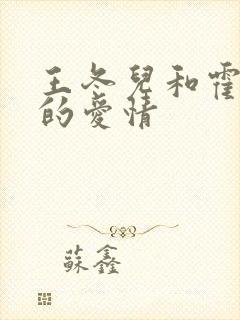 王冬兒和霍
的愛情
蘇鑫